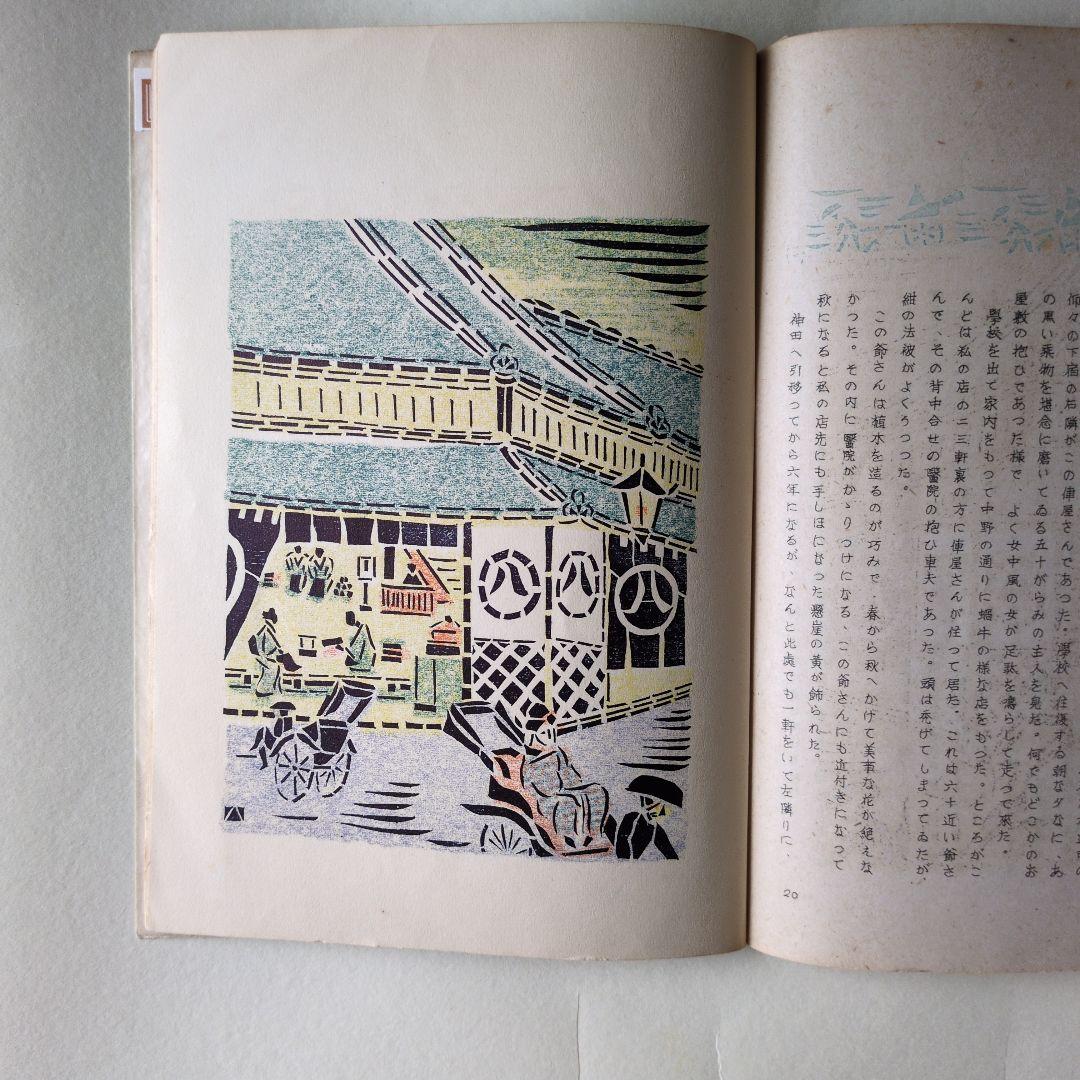 仰々の下宿の右隣がこの俥屋さんであつた。學校へ往復する朝な夕なに、あ
の黒い乗物を堪念に磨いてゐる五十がらみの主人を見た。何でもどこかのお
屋敷の抱ひであつた様で、よく女中風の女が足駄を鳴らして走つて來た。
學校を出て家内をもつて中野の通りに蝸牛の様な店をもつた。ところがこ
んどは私の店の二三軒裏の方に俥屋さんが住つて居た。これは六十近い爺さ
んで、その背中合せの醫院の抱ひ車夫であつた。頭は禿げてしまつてゐたが、
紺の法被がよくうつつた。
この爺さんは植木を造るのが巧みで、春から秋へかけて美事な花が絶えな
かつた。その内に醫院がかゝりつけになる、この爺さんにも近付きになつて
秋になると私の店先にも手しほになつた懸崖の黄が飾られた。
神田へ引移つてから六年になるが、なんと此處でも一軒をいて左隣りに、
20
八
八
八